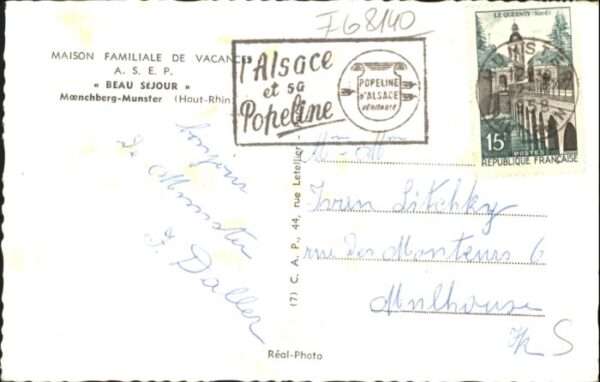 F68140
MAISON FAMILIALE DE VACANCES
A. S. E. P.
« BEAU SÉJOUR »
Mœnchberg-Munster (Haut-Rhin)
l'Alsace
et sa
Popeline
POPELINE
D'ALSACE
véritable
LE QUESNOY (Nord)
15F
POSTES
RÉPUBLIQUE FRANÇAISE
bonjour
de Munster
J. Daller
(7) C. A. P., 44, rue Letellier -
Mr Mme
Ivan Litchky
rue des Monteurs 6
Mulhouse
Réal-Photo